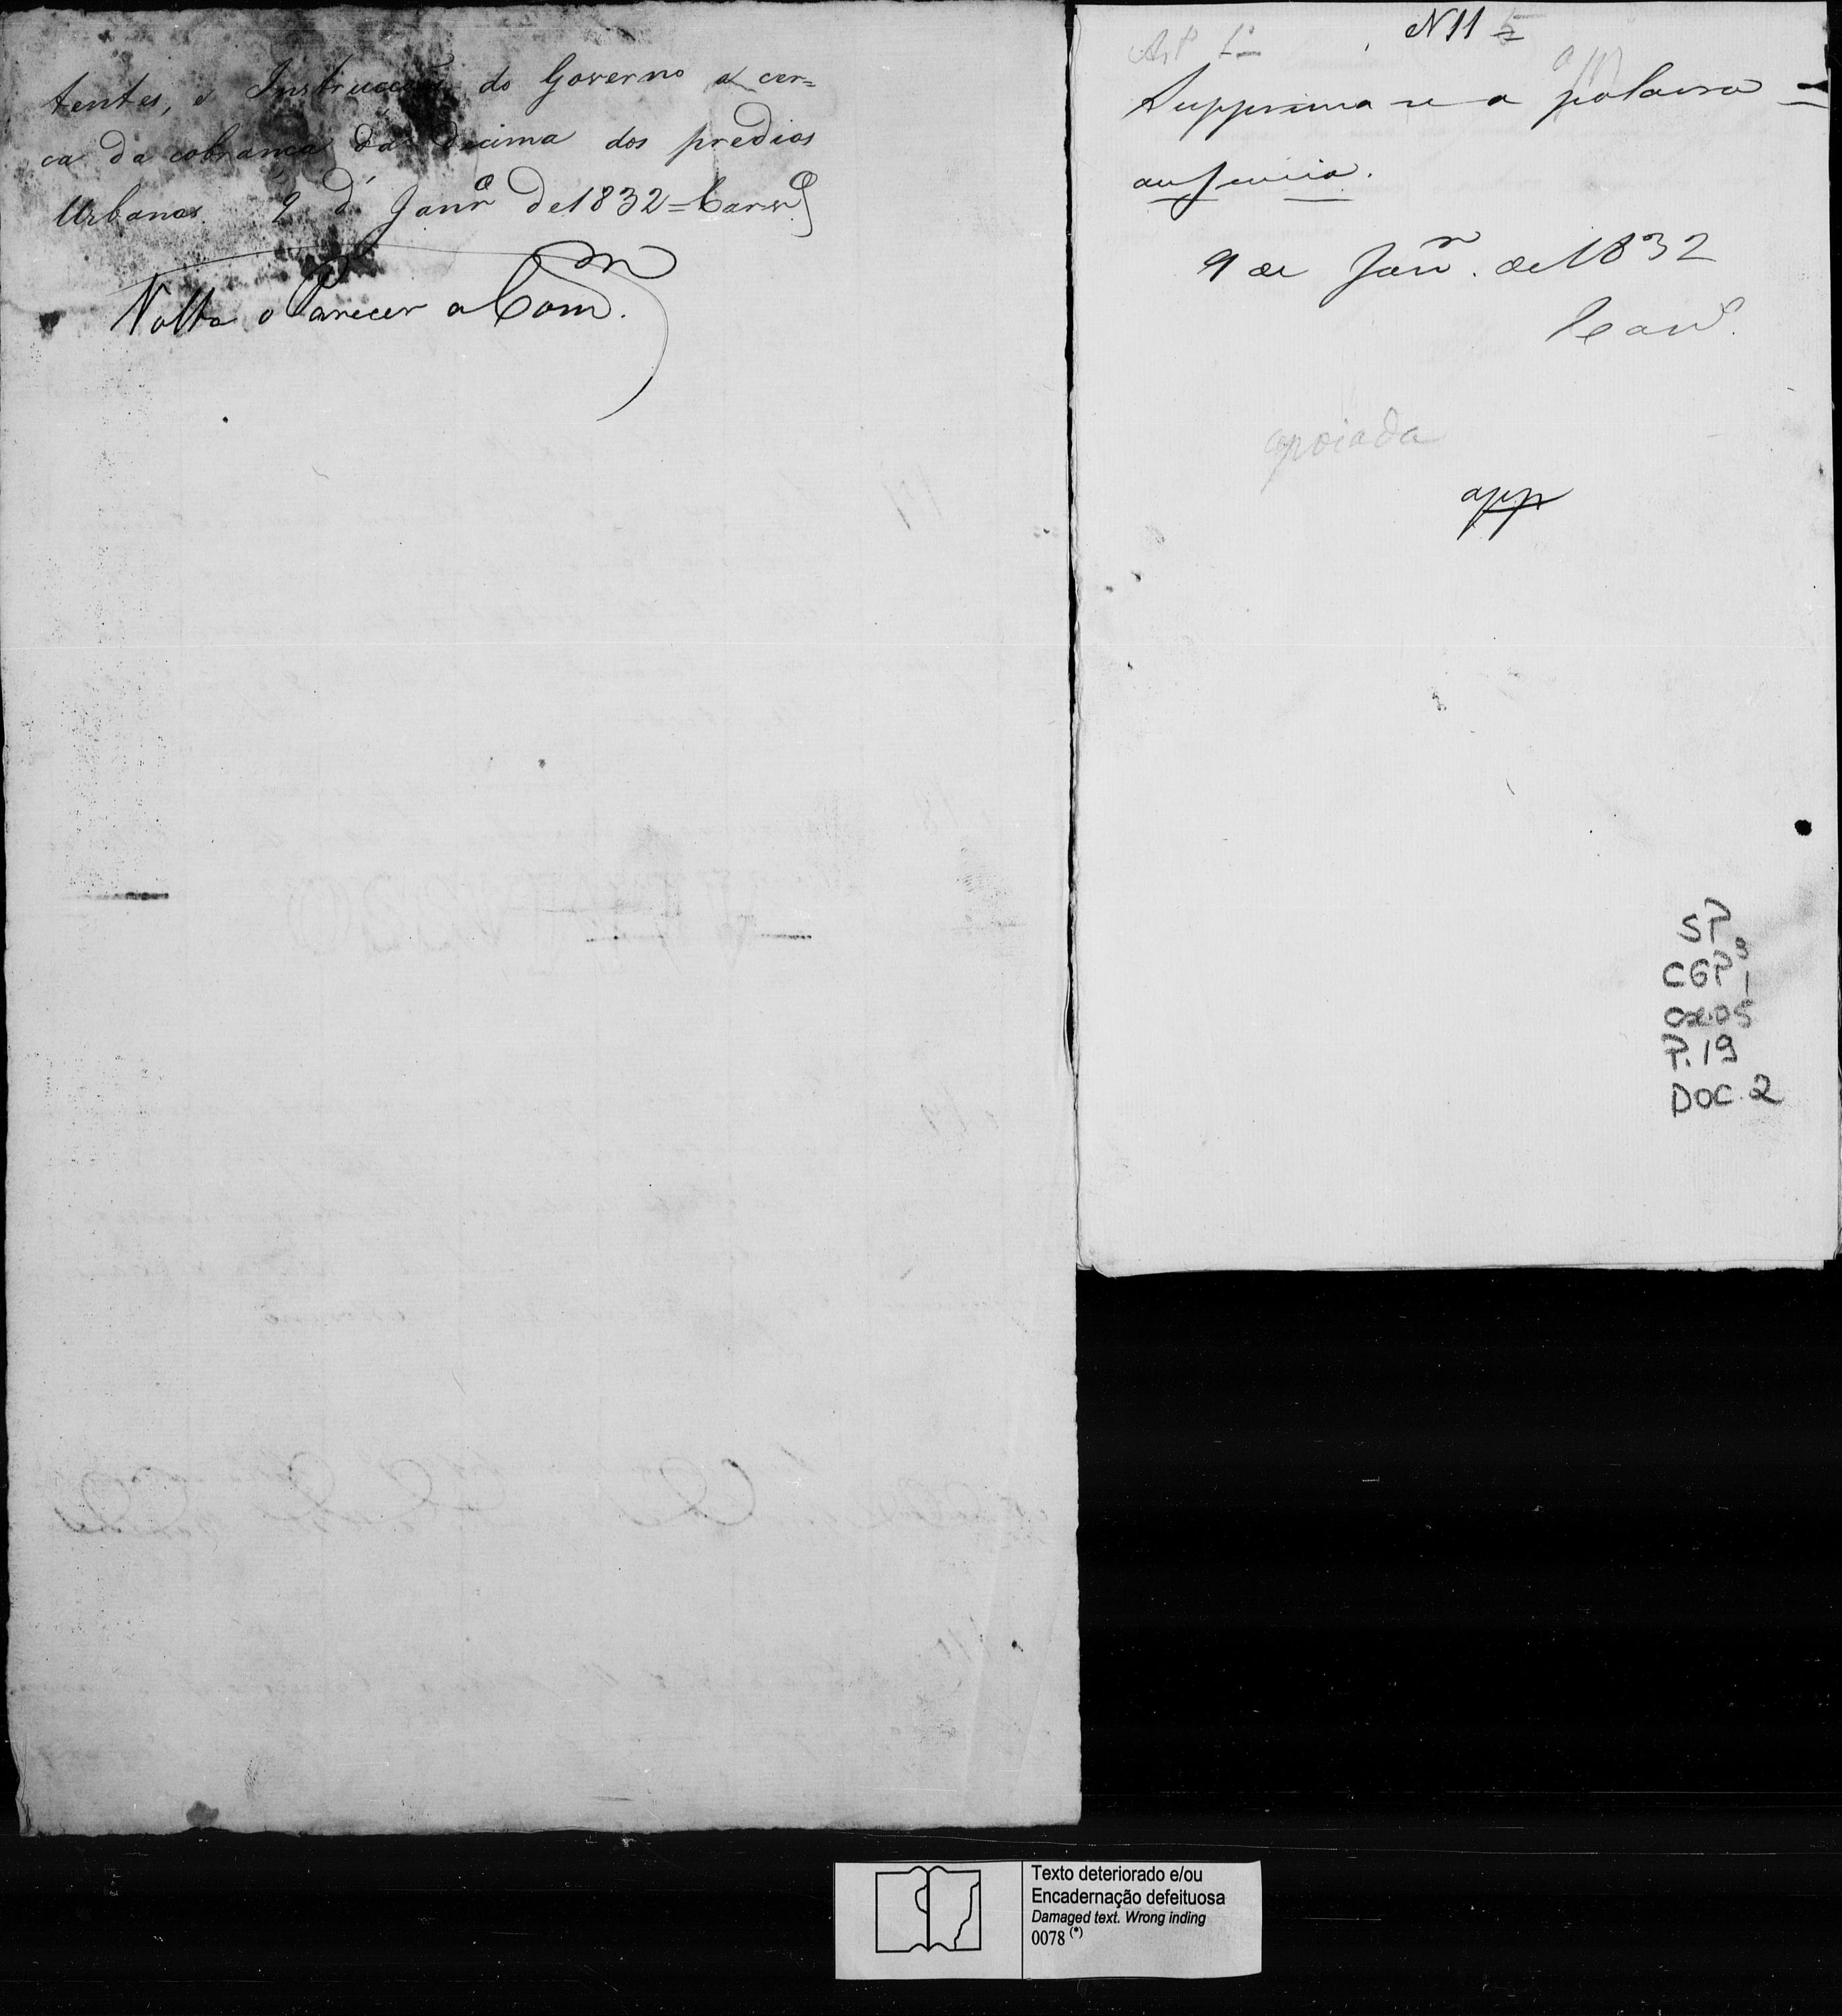 tentes, e Instrucções do Governo a cer=
ca da cobrança da decima dos predios
Urbanos. 9 d' Janrº de 1832 = Carvº
Volta o Parecer a Com.
N 11 5
Artº 1º
app
Supprima-se a palavra =
ausencia.
9 de Janr. de 1832
Carvº.
apoiada
app
SP
CGP 1
cx.05
P.19
DOC.2
Texto deteriorado e/ou
Encadernação defeituosa
Damaged text. Wrong inding
0078 (*)